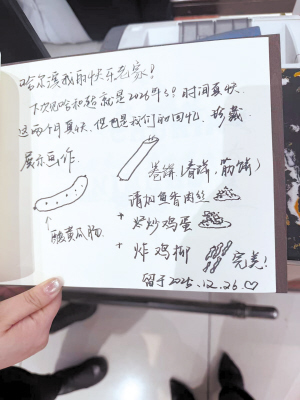 哈尔滨我的快乐老家!
下次见哈松站就是2026年了!时间真快
这两个月真快,但也是我们的回忆.珍藏.
展示画作.
卷饼(春饼、筋饼)
请加鱼香肉丝
酸黄瓜肠
+ 炒鸡蛋
+ 炸鸡柳
完美!
留于2025.12.26.♡